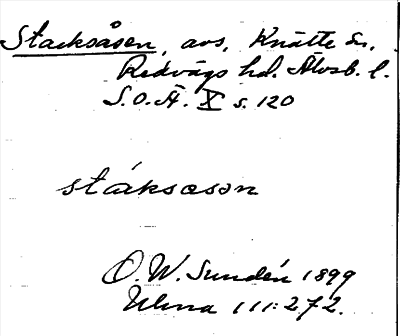 Stacksåsen, avs, Knätte sn,
Redvägs hd. Älvsb. l.
S.O.Ä. X s. 120
stáksasan
O. W. Sundén 1899
Ulma 111:272.